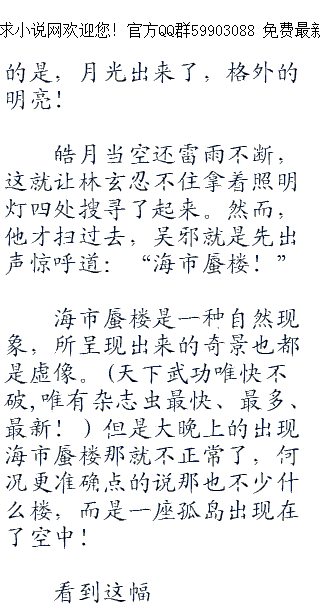 求小说网欢迎您！官方QQ群59903088 免费最新
的是，月光出来了，格外的
明亮！
皓月当空还雷雨不断，
这就让林玄忍不住拿着照明
灯四处搜寻了起来。然而，
他才扫过去，吴邪就是先出
声惊呼道：“海市蜃楼！”
海市蜃楼是一种自然现
象，所呈现出来的奇景也都
是虚像。(天下武功唯快不
破,唯有杂志虫最快、最多、
最新！)但是大晚上的出现
海市蜃楼那就不正常了，何
况更准确点的说那也不少什
么楼，而是一座孤岛出现在
了空中！
看到这幅